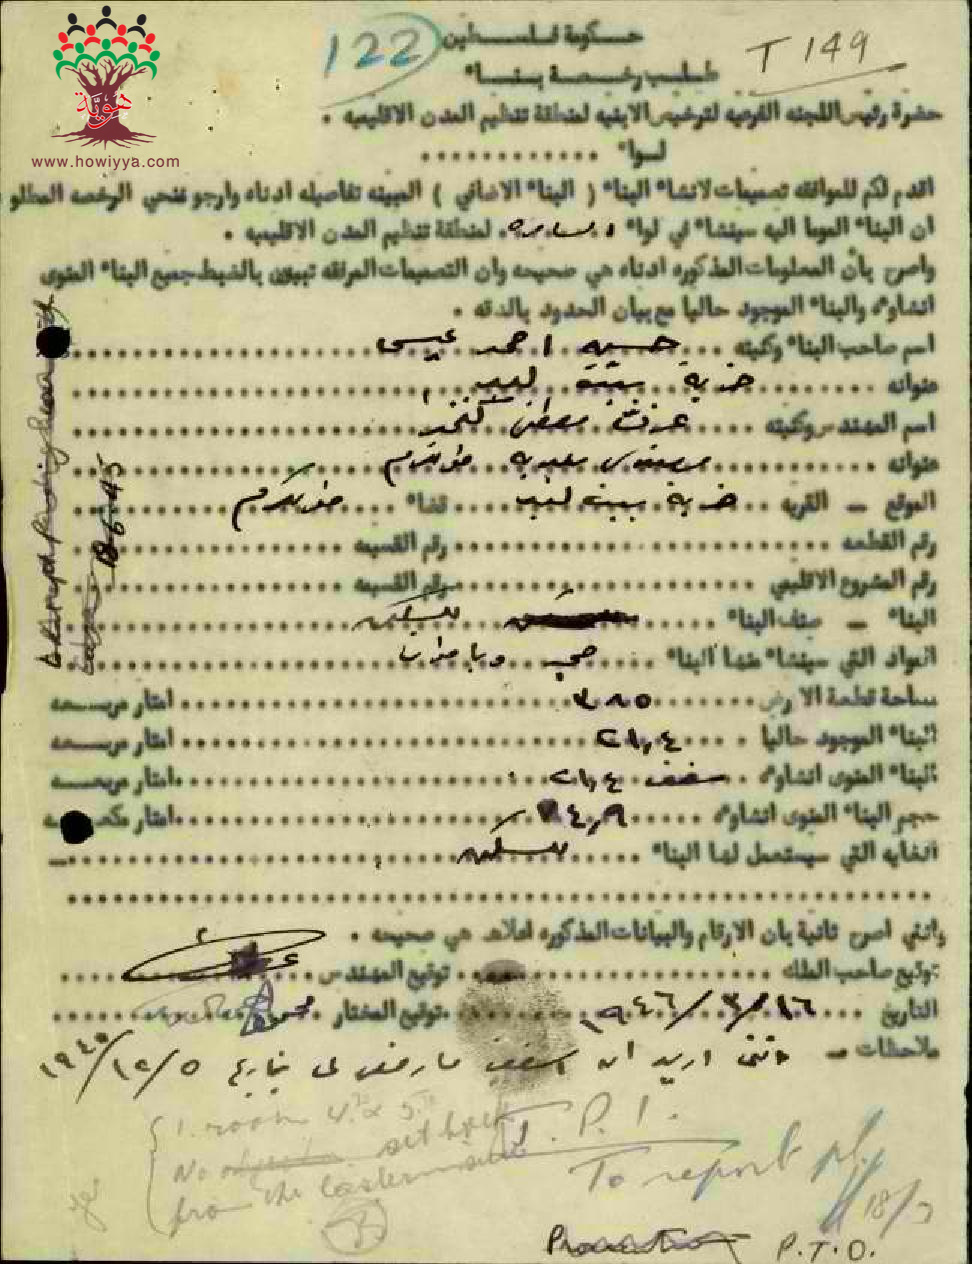 حكومة فلسطين
122
T 149
طلب رخصة بناء
حضرة رئيس اللجنه الفرعيه لترخيص الابنيه لمنطقة تنظيم المدن الاقليميه .
لواء ............
اقدم لكم للموافقه تصميمات لانشاء البناء ( البناء الاضافي ) المبينه تفاصيله ادناه وارجو منحي الرخصه المطلو
ان البناء الموما اليه سينشاء في لواء السامره لمنطقة تنظيم المدن الاقليميه .
واصرح بأن المعلومات المذكوره ادناه هي صحيحه وان التصميمات المرفقه تبين بالضبط جميع البناء المنوى
انشاوءه والبناء الموجود حاليا مع بيان الحدود بالدقه .
اسم صاحب البناء وكنيته ... احمد عيسى
عنوانه ... خربة بيت ليد
اسم المهندس وكنيته ...
عنوانه ... طولكرم
الموقع - القريه ... خربة بيت ليد ... قضاء ... طولكرم
رقم القطعه ... رقم القسيمه
رقم المشروع الاقليمي ... رقم القسيمه
البناء - صنف البناء ... للسكن
المواد التي سينشاء منها البناء ...
مساحة قطعة الارض ... ٣٨٥ ... امتار مربعه
البناء الموجود حاليا ... ٢١,٤ ... امتار مربعه
البناء المنوى انشاوءه . سقف ٢١,٤ ... امتار مربعه
حجم البناء المنوى انشاوءه ... ٧٤,٩ ... امتار مكعبه
الغايه التي سيستعمل لها البناء ... للسكن
وانني اصرح ثانية بان الارقام والبيانات المذكوره اعلاه هي صحيحه .
توقيع صاحب الطلب ... توقيع المهندس
التاريخ ... ١٦/٣/١٩٤٦ ... توقيع المختار
ملاحظات - انني اريد ان اسقف ما رخص لي بتاريخ ٥/١٢/١٩٤٥
1. room
No set back
from the Eastern side
T. P. I.
To report pl.
18/3
P.T.O.
18-6-45
هوية
www.howiyya.com